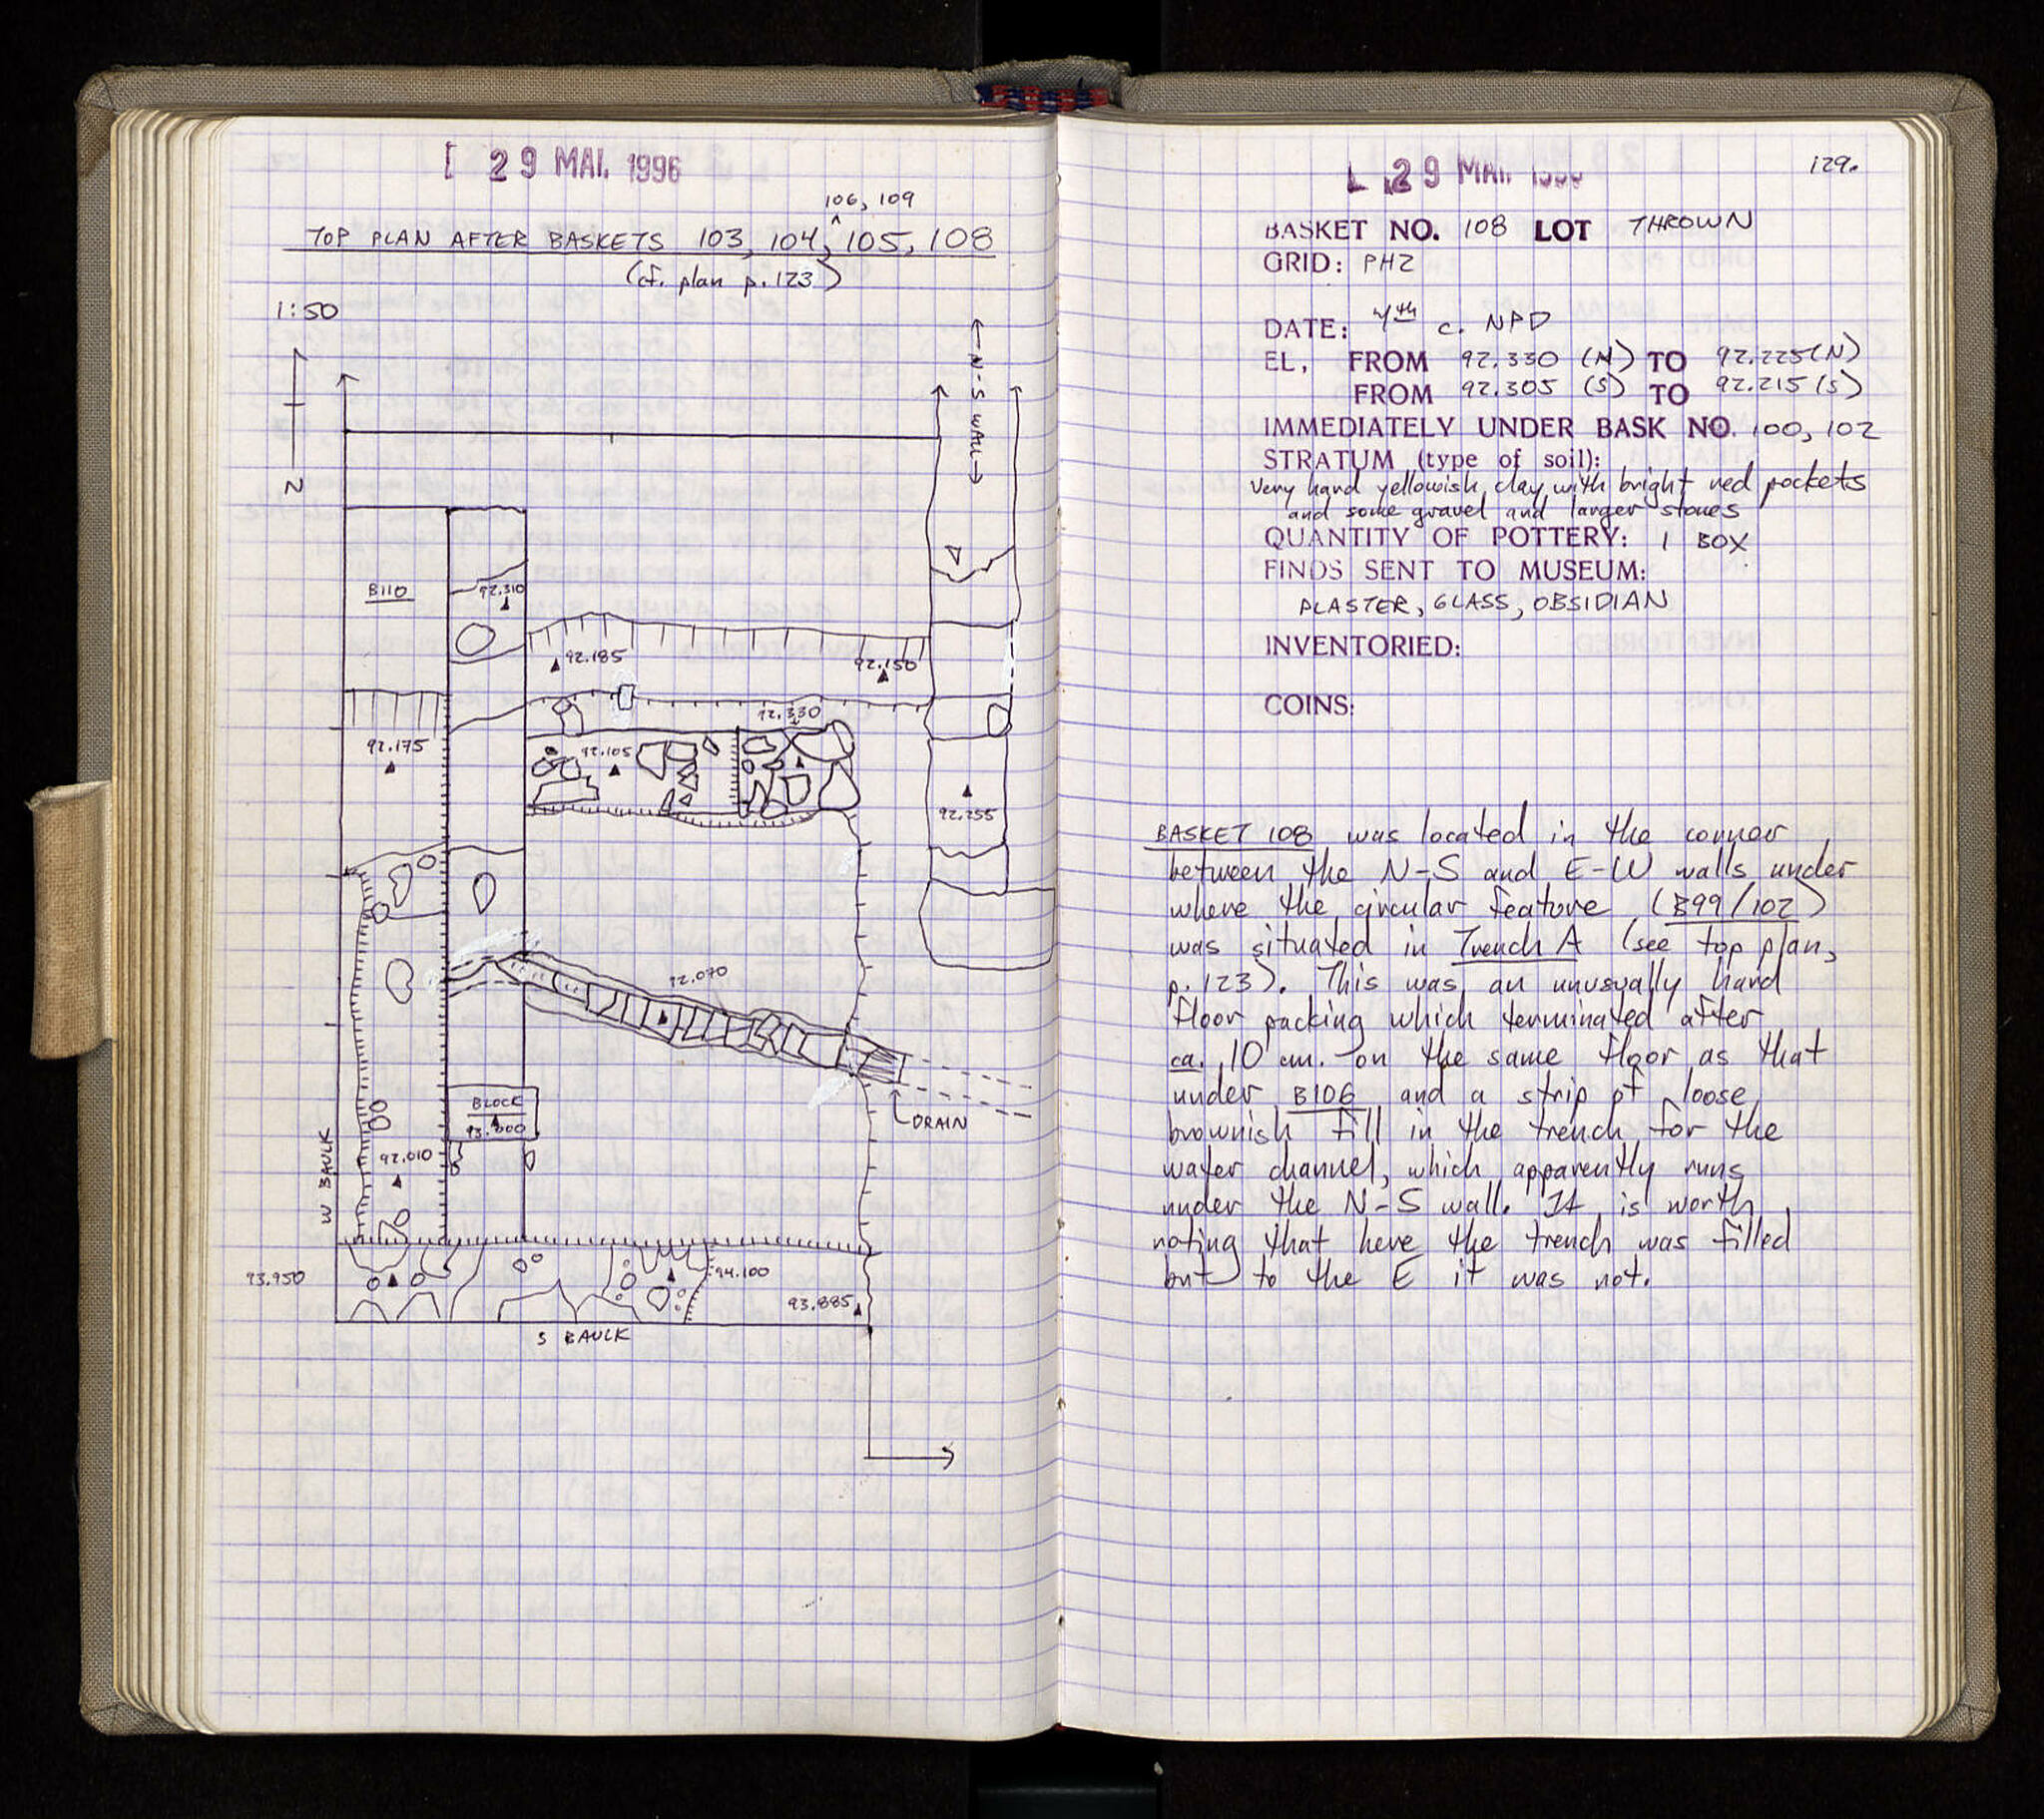 29 MAI. 1996
106, 109
TOP PLAN AFTER BASKETS 103, 104, 105, 108
(cf. plan p.123)
1:50
N
←N-S WALL→
B110
92.310
92.185
92.150
92.330
92.175
92.105
92.255
92.070
DRAIN
BLOCK
93.000
92.010
W BAULK
93.950
94.100
93.885
S BAULK
29 MAI.
129.
BASKET NO. 108 LOT THROWN
GRID: PHZ
DATE: 4th c. NPD
EL, FROM 92.330 (N) TO 92.225(N)
FROM 92.305 (S) TO 92.215(S)
IMMEDIATELY UNDER BASK NO. 100, 102
STRATUM (type of soil):
very hard yellowish clay with bright red pockets
and some gravel and larger stones
QUANTITY OF POTTERY: 1 BOX
FINDS SENT TO MUSEUM:
PLASTER, GLASS, OBSIDIAN
INVENTORIED:
COINS:
BASKET 108 was located in the corner
between the N-S and E-W walls under
where the circular feature (B99/102)
was situated in Trench A (see top plan,
p.123). This was an unusually hard
floor packing which terminated after
ca. 10 cm. on the same floor as that
under B106 and a strip of loose
brownish fill in the trench for the
water channel, which apparently runs
under the N-S wall. It is worth
noting that here the trench was filled
but to the E it was not.